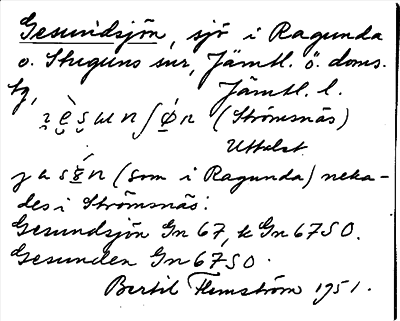 Gesundsjön, sjö i Ragunda
o. Stuguns snr, Jämtl. ö. doms.
tg, Jämtl. l.
(Strömsnäs)
Uttalet
(som i Ragunda) neka-
des i Strömsnäs:
Gesundsjön Gn 67, k Gn 67 SO.
Gesunden Gn 67 SO.
Bertil Flemström 1951.